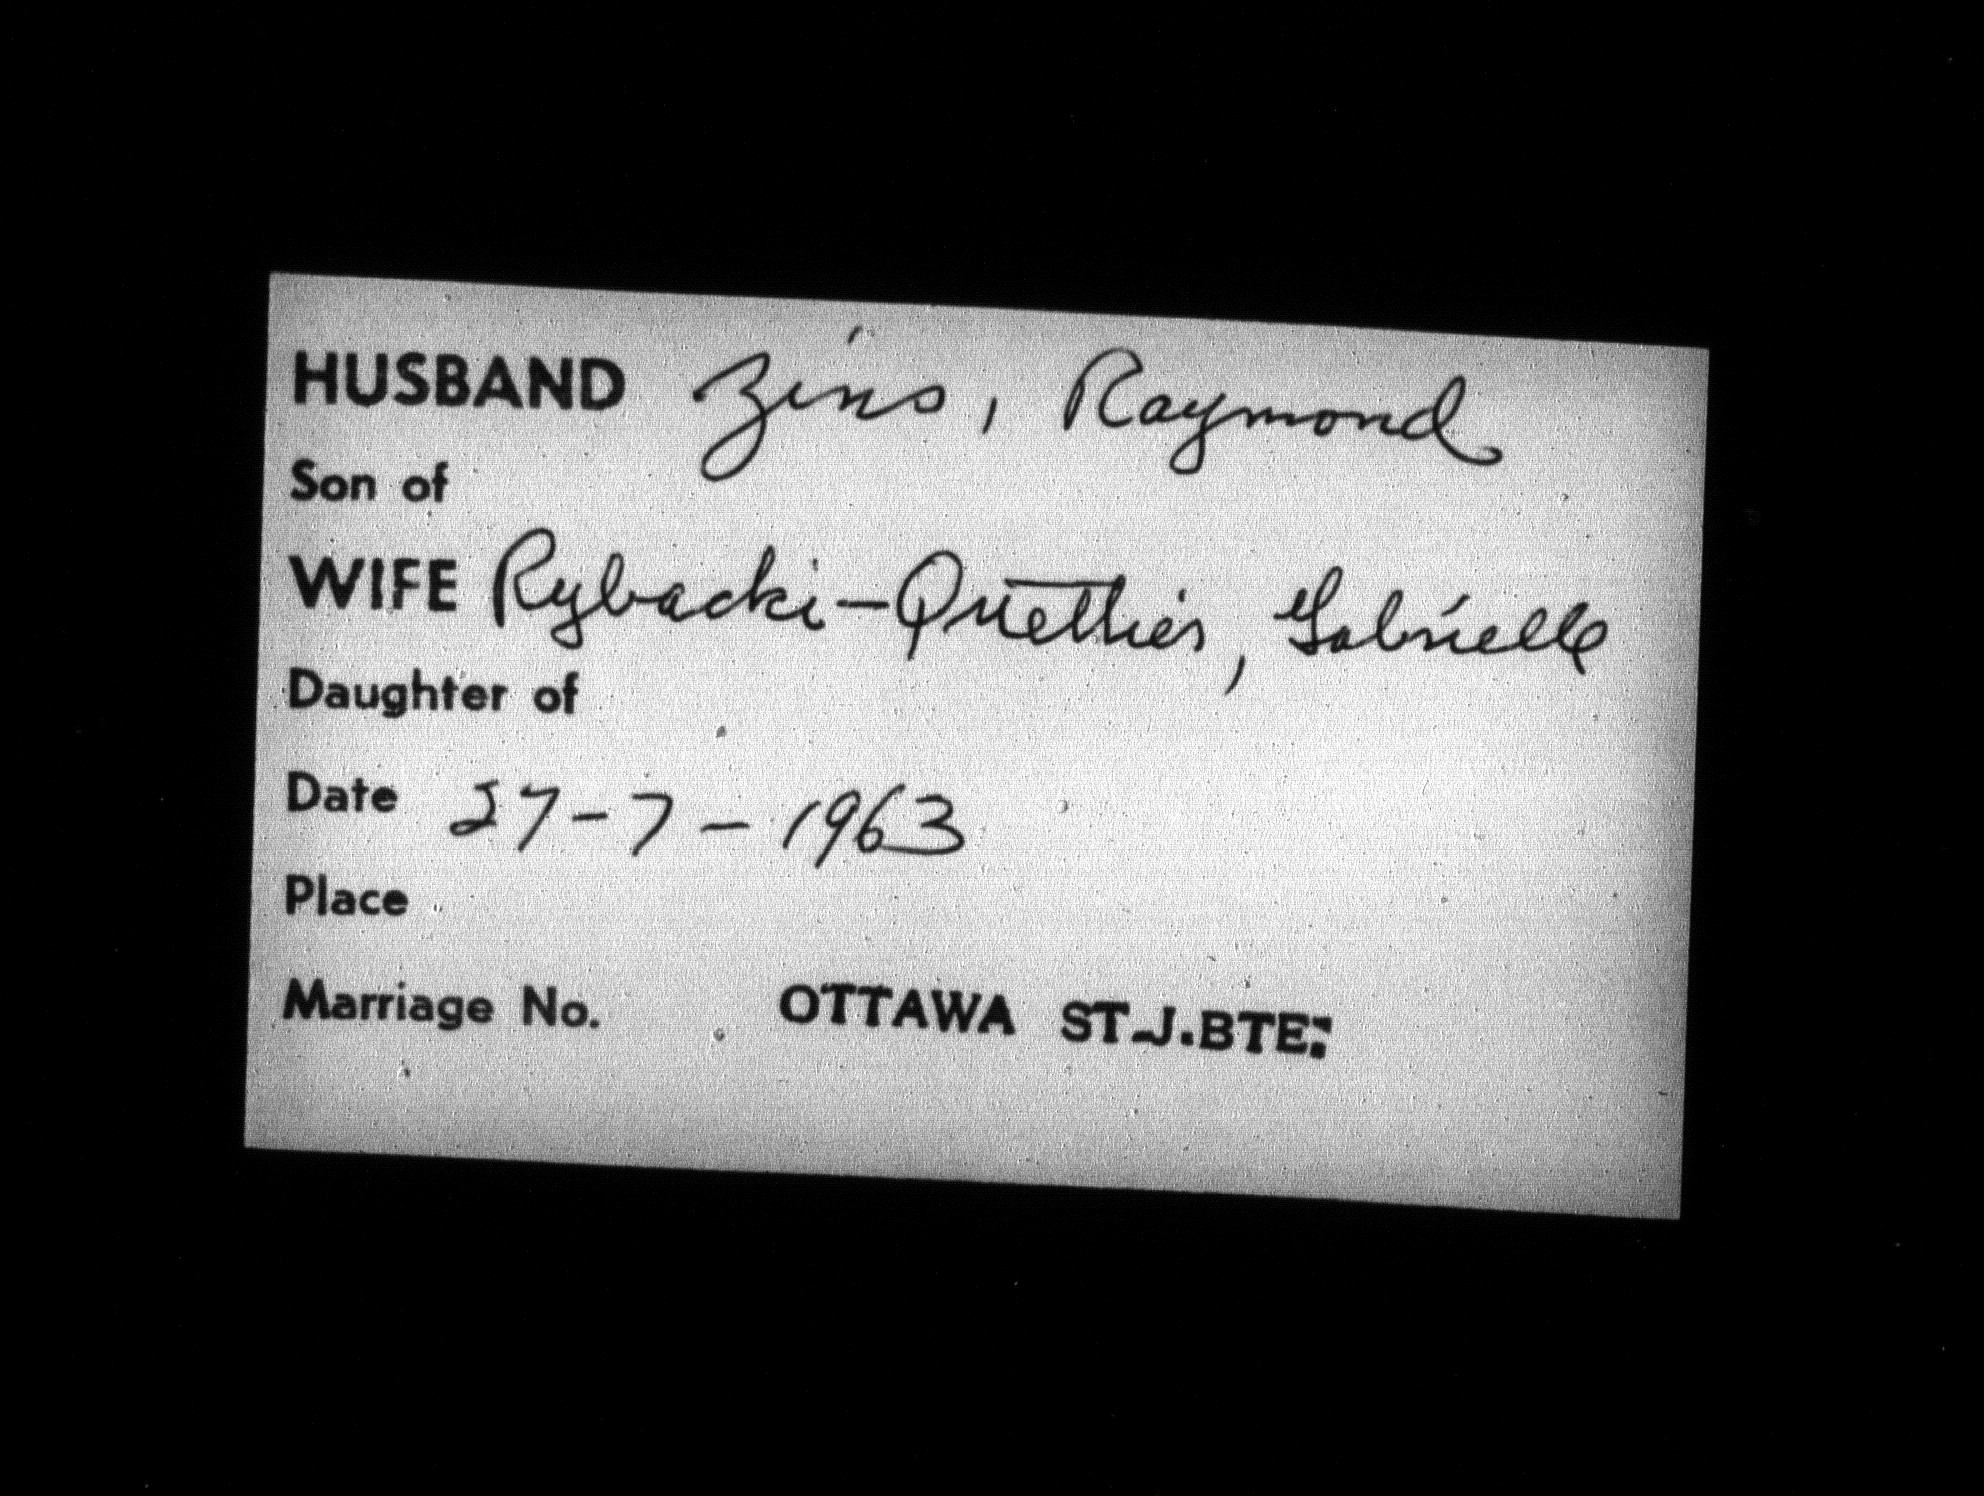 HUSBAND Zins, Raymond
Son of
WIFE Rybacki-Quettier, Gabrielle
Daughter of
Date 27-7-1963
Place
Marriage No. OTTAWA ST-J.BTE: